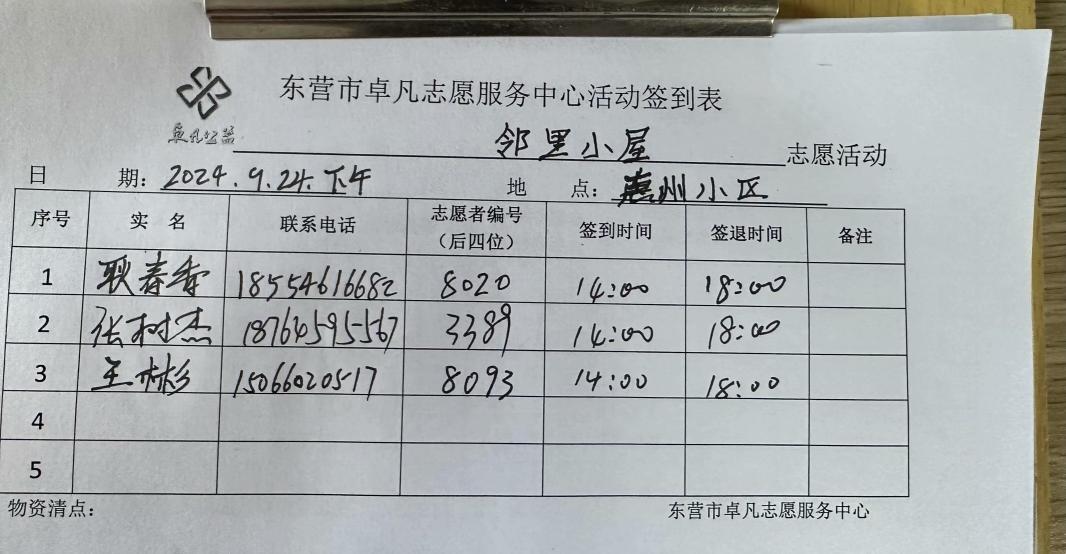 东营市卓凡志愿服务中心活动签到表
卓凡公益
邻里小屋 志愿活动
日 期：2024.9.24.下午 地 点：惠州小区
序号 实 名 联系电话 志愿者编号（后四位） 签到时间 签退时间 备注
1 耿春香 18554616682 8020 14:00 18:00
2 张树杰 18764595567 3389 14:00 18:00
3 王彬彬 15066020517 8093 14:00 18:00
4
5
物资清点： 东营市卓凡志愿服务中心